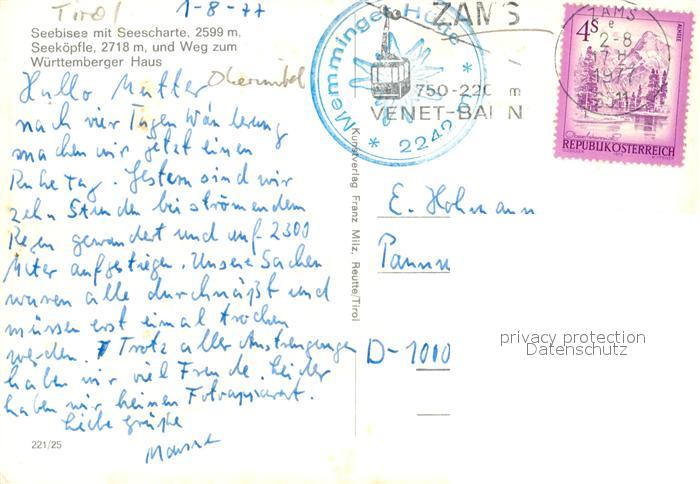 Tirol 1-8-77
Seebisee mit Seescharte, 2599 m,
Seeköpfle, 2718 m, und Weg zum
Württemberger Haus
Hallo Mutter
nach vier Tagen Wanderung
machen wir jetzt einen
Ruhe Tag. Gestern sind wir
zehn Stunden bei strömendem
Regen gewandert und auf 2300
Meter aufgestiegen. Unsere Sachen
waren alle durchnäßt und
müssen erst einmal trocken
werden. Trotz aller Anstrengungen
haben wir viel Freude. Leider
haben wir keinen Fotoapparat.
Liebe Grüße
221/25
Kunstverlag Franz Milz, Reutte/Tirol
Memminger Hütte
* 2242 m *
ZAMS
750-220 m
VENET-BA N
ZAMS
e
2-8
17 H
1977
6511
4 S
ALMSEE
REPUBLIK ÖSTERREICH
E. Hohmann
D-1000
privacy protection
Datenschutz